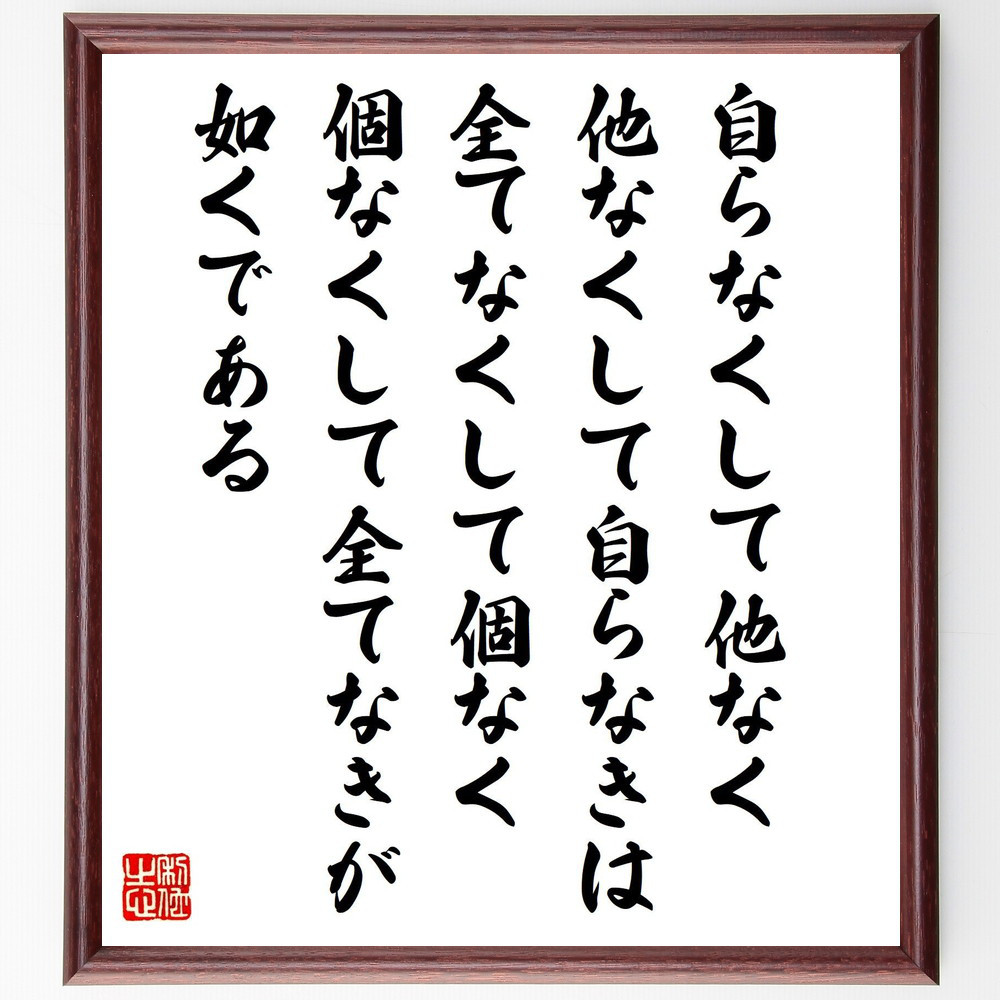 自らなくして他なく
他なくして自らなきは
全てなくして個なく
個なくして全てなきが
如くである